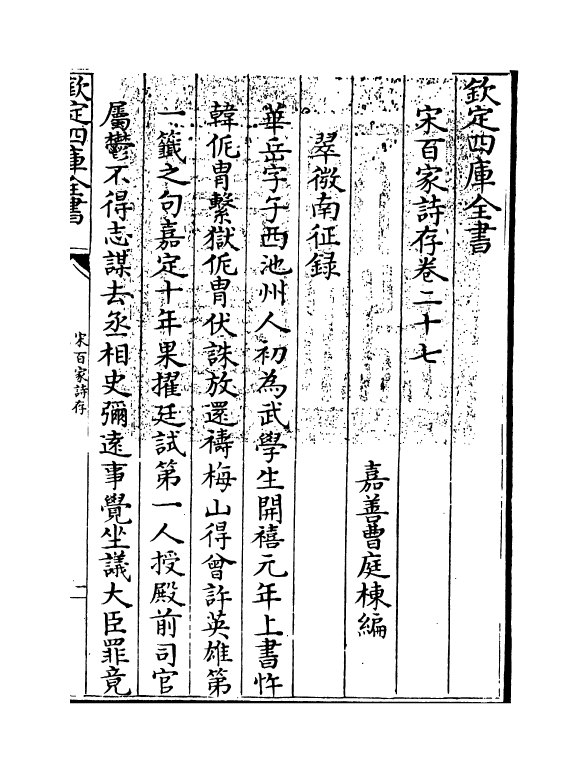 欽定四庫全書
宋百家詩存卷二十七
嘉善曹庭棟編
翠微南征録
華岳字子西池州人初為武學生開禧元年上書忤
韓侂胄繫獄侂胄伏誅放還禱梅山得曾許英雄第
一籤之句嘉定十年果擢廷試第一人授殿前司官
屬鬱不得志謀去丞相史彌逺事覺坐議大臣罪竟
欽定四庫全書
宋百家詩存
一